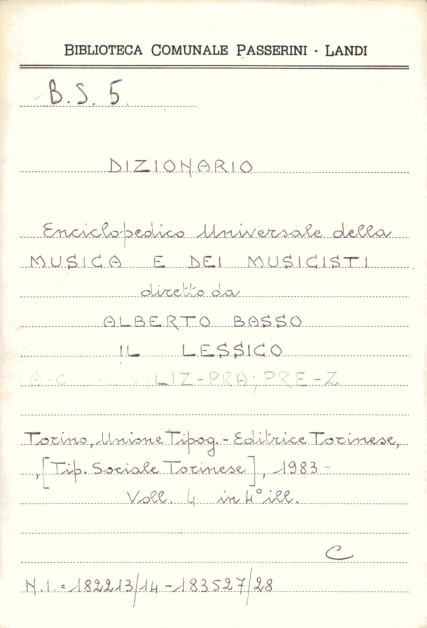 BIBLIOTECA COMUNALE PASSERINI - LANDI
B.S. 5.
DIZIONARIO
Enciclopedico Universale della
MUSICA E DEI MUSICISTI
diretto da
ALBERTO BASSO
IL LESSICO
A-C LIZ-PRA; PRE-Z
Torino, Unione Tipog.-Editrice Torinese,
,[Tip. Sociale Torinese], 1983-
Voll. 4 in 4° ill.
C
N.I.=182213/14-183527/28